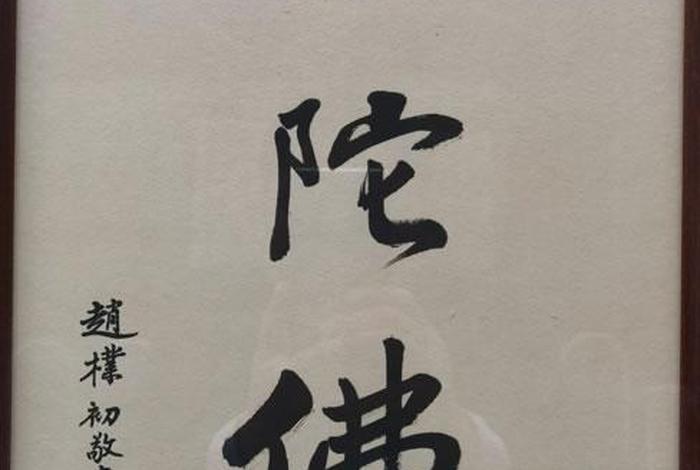 陀佛
趙樸初敬